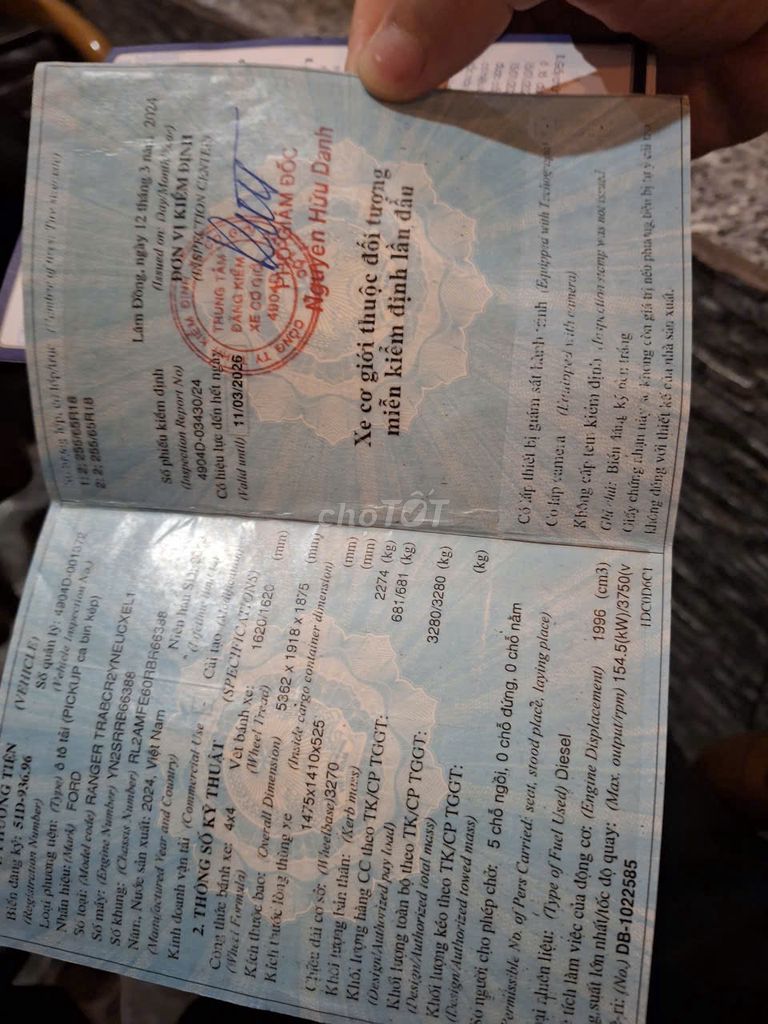 Biển đăng ký: 51D-936.96
(Registration Number)
(VEHICLE)
Số quản lý: 4904D-001672
(Vehicle Inspection No.)
Loại phương tiện: (Type) ô tô tải (PICKUP ca bin kép)
Nhãn hiệu: (Mark) FORD
Số loại: (Model code) RANGER TRABCR2YNEUCXEL1
Số máy: (Engine Number) YN2SRRB66388
Số khung: (Chassis Number) RL2AMFE60RBR66388
Năm, Nước sản xuất: 2024, Việt Nam
(Manufactured Year and Country)
Kinh doanh vận tải (Commercial Use
Cải tạo
2. THÔNG SỐ KỸ THUẬT (SPECIFICATIONS)
Công thức bánh xe: 4x4 Vết bánh xe: 1620/1620 (mm)
(Wheel Formula) (Wheel Tread)
Kích thước bao: (Overall Dimension) 5362 x 1918 x 1875 (mm)
Kích thước lòng thùng xe (Inside cargo container dimension)
1475x1410x525 (mm)
Chiều dài cơ sở: (Wheelbase)3270 (mm)
Khối lượng bản thân: (Kerb mass) 2274 (kg)
Khối lượng hàng CC theo TK/CP TGGT: 681/681 (kg)
(Design/Authorized pay load)
Khối lượng toàn bộ theo TK/CP TGGT: 3280/3280 (kg)
(Design/Authorized total mass)
Khối lượng kéo theo TK/CP TGGT: (kg)
(Design/Authorized towed mass)
Số người cho phép chở: 5 chỗ ngồi, 0 chỗ đứng, 0 chỗ nằm
Permissible No. of Pers Carried: seat, stood place, laying place)
nhiên liệu: (Type of Fuel Used) Diesel
tích làm việc của động cơ: (Engine Displacement) 1996 (cm3)
suất lớn nhất/tốc độ quay: (Max. output/rpm) 154.5(kW)/3750(v
(No.) DB-1022585
1DC0D6C1
(Number of tires; Tire size/axle)
1: 2; 255/65R18
2: 2; 255/65R18
Số phiếu kiểm định
(Inspection Report No)
4904D-03430/24
Có hiệu lực đến hết ngày
(Valid until) 11/03/2026
Lâm Đồng, ngày 12 tháng 3 năm 2024
(Issued on: Day/Month/Year)
ĐƠN VỊ KIỂM ĐỊNH
(INSPECTION CENTER)
TRUNG TÂM
ĐĂNG KIỂM
XE CƠ GIỚI
4904D
CÔNG TY
PHÓ GIÁM ĐỐC
Nguyễn Hữu Danh
Xe cơ giới thuộc đối tượng
miễn kiểm định lần đầu
Có lắp thiết bị giám sát hành trình (Equipped with Tachograph)
Có lắp camera (Equipped with camera)
Không cấp tem kiểm định (Inspection stamp was not issued)
Ghi chú: Biển đăng ký nền trắng
Giấy chứng nhận này sẽ không còn giá trị nếu phương tiện bị tự ý cải tạo
không đúng với thiết kế của nhà sản xuất.
chợTỐT